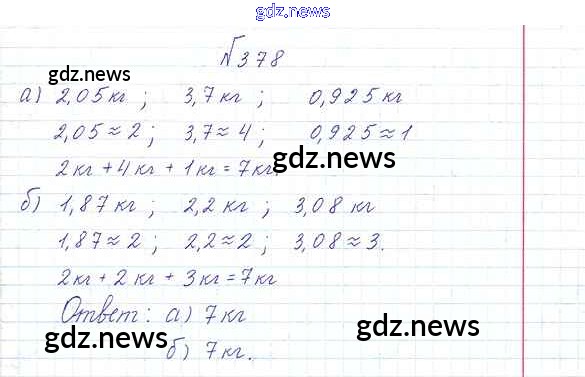 gdz.news
№378
gdz.news
а) 2,05 кг ; 3,7 кг ; 0,925 кг
2,05 ≈ 2 ; 3,7 ≈ 4 ; 0,925 ≈ 1
2 кг + 4 кг + 1 кг = 7 кг.
gdz.news
б) 1,87 кг ; 2,2 кг ; 3,08 кг
1,87 ≈ 2 ; 2,2 ≈ 2 ; 3,08 ≈ 3.
2 кг + 2 кг + 3 кг = 7 кг
Ответ: а) 7 кг
gdz.news
gdz.news
б) 7 кг.